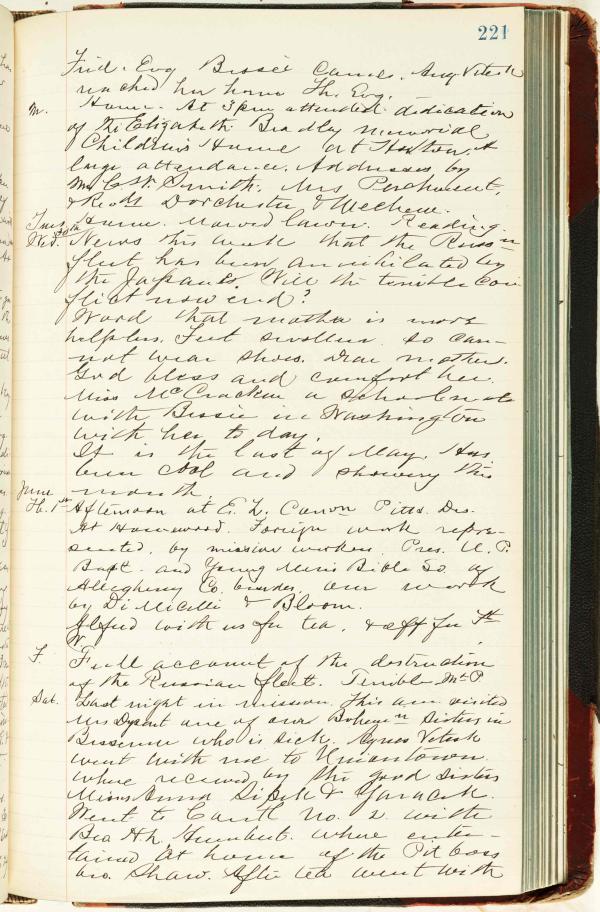 221
Frid. Evg Bessie Came. Aug. Vitesk
reached her home Th. Evg.
M. Home. At 3 pm attended dedication
of The Elizabeth Bradley memorial
Children's Home at Hoxton. A
large attendance. Addresses by
Mr C. W. Smith. Mrs
& Revds Dorchester & Mechem.
Tues 30th Home. Mowed lawn. Reading.
Wed. News this week that the Russn
fleet has been annihilated by
the Japanes. Will the terrible con
flict now end?
Word that mother is more
helpless. Feet swollen. so can-
not wear shoes. Dear mother.
God bless and comfort her.
Miss McCracken a schoolmate
with Bessie in Washington
with her to day.
It is the last of May. Has
been cool and showery this
month.
June
Th. 1st Afternoon at E. L. Canon Pitts. Dis.
At Homewood. Foreign work repre-
sented, by mission workers, Pres. U. P.
Bapt. and Young Men's Bible So. of
Allegheny Co. besides, our work
by Di Micelli & Bloom.
Alfred with us for tea, & off for Ft
W.
F. Full account of the destruction
of the Russian fleet. Terrible. Mt P.
Sat. Last night in mission. This am. visited
Mrs one of our Bohemn Sisters in
Bessemer who is sick. Agnes Vitesk
went with me to Uniontown.
where received by the good sisters
Misses Anna & Yuracek.
Went to Cont. No. 2 with
Bro H. h. Humbert. where enter-
tained at home of the Pit boss
bro. Shaw. After tea went with